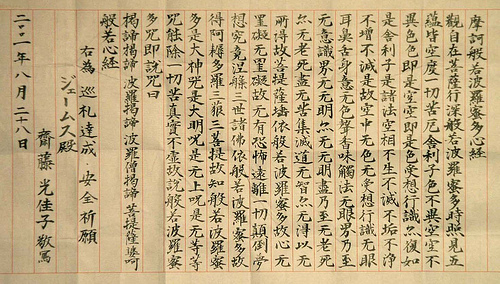 摩訶般若波羅蜜多心経
觀自在菩薩行深般若波羅蜜多時照見五
蘊皆空度一切苦厄舍利子色不異空空不
異色色即是空空即是色受想行識亦復如
是舍利子是諸法空相不生不滅不垢不净
不增不減是故空中无色无受想行識无眼
耳鼻舌身意无色聲香味觸法无眼界乃至
无意識界无无明亦无无明盡乃至无老死
亦无老死盡无苦集滅道无智亦无得以无
所得故菩提薩埵依般若波羅蜜多故心无
罣礙无罣礙故无有恐怖遠離一切顛倒夢
想究竟涅槃三世諸佛依般若波羅蜜多故
得阿耨多羅三藐三菩提故知般若波羅蜜
多是大神呪是大明呪是无上呪是无等等
呪能除一切苦真實不虚故說般若波羅蜜
多呪即說呪曰
揭諦揭諦 波羅揭諦 波羅僧揭諦 菩提薩婆呵
般若心経
右為 巡礼達成 安全祈願
ジェームス殿
年八月二十八日
齋藤 光佳子 敬寫